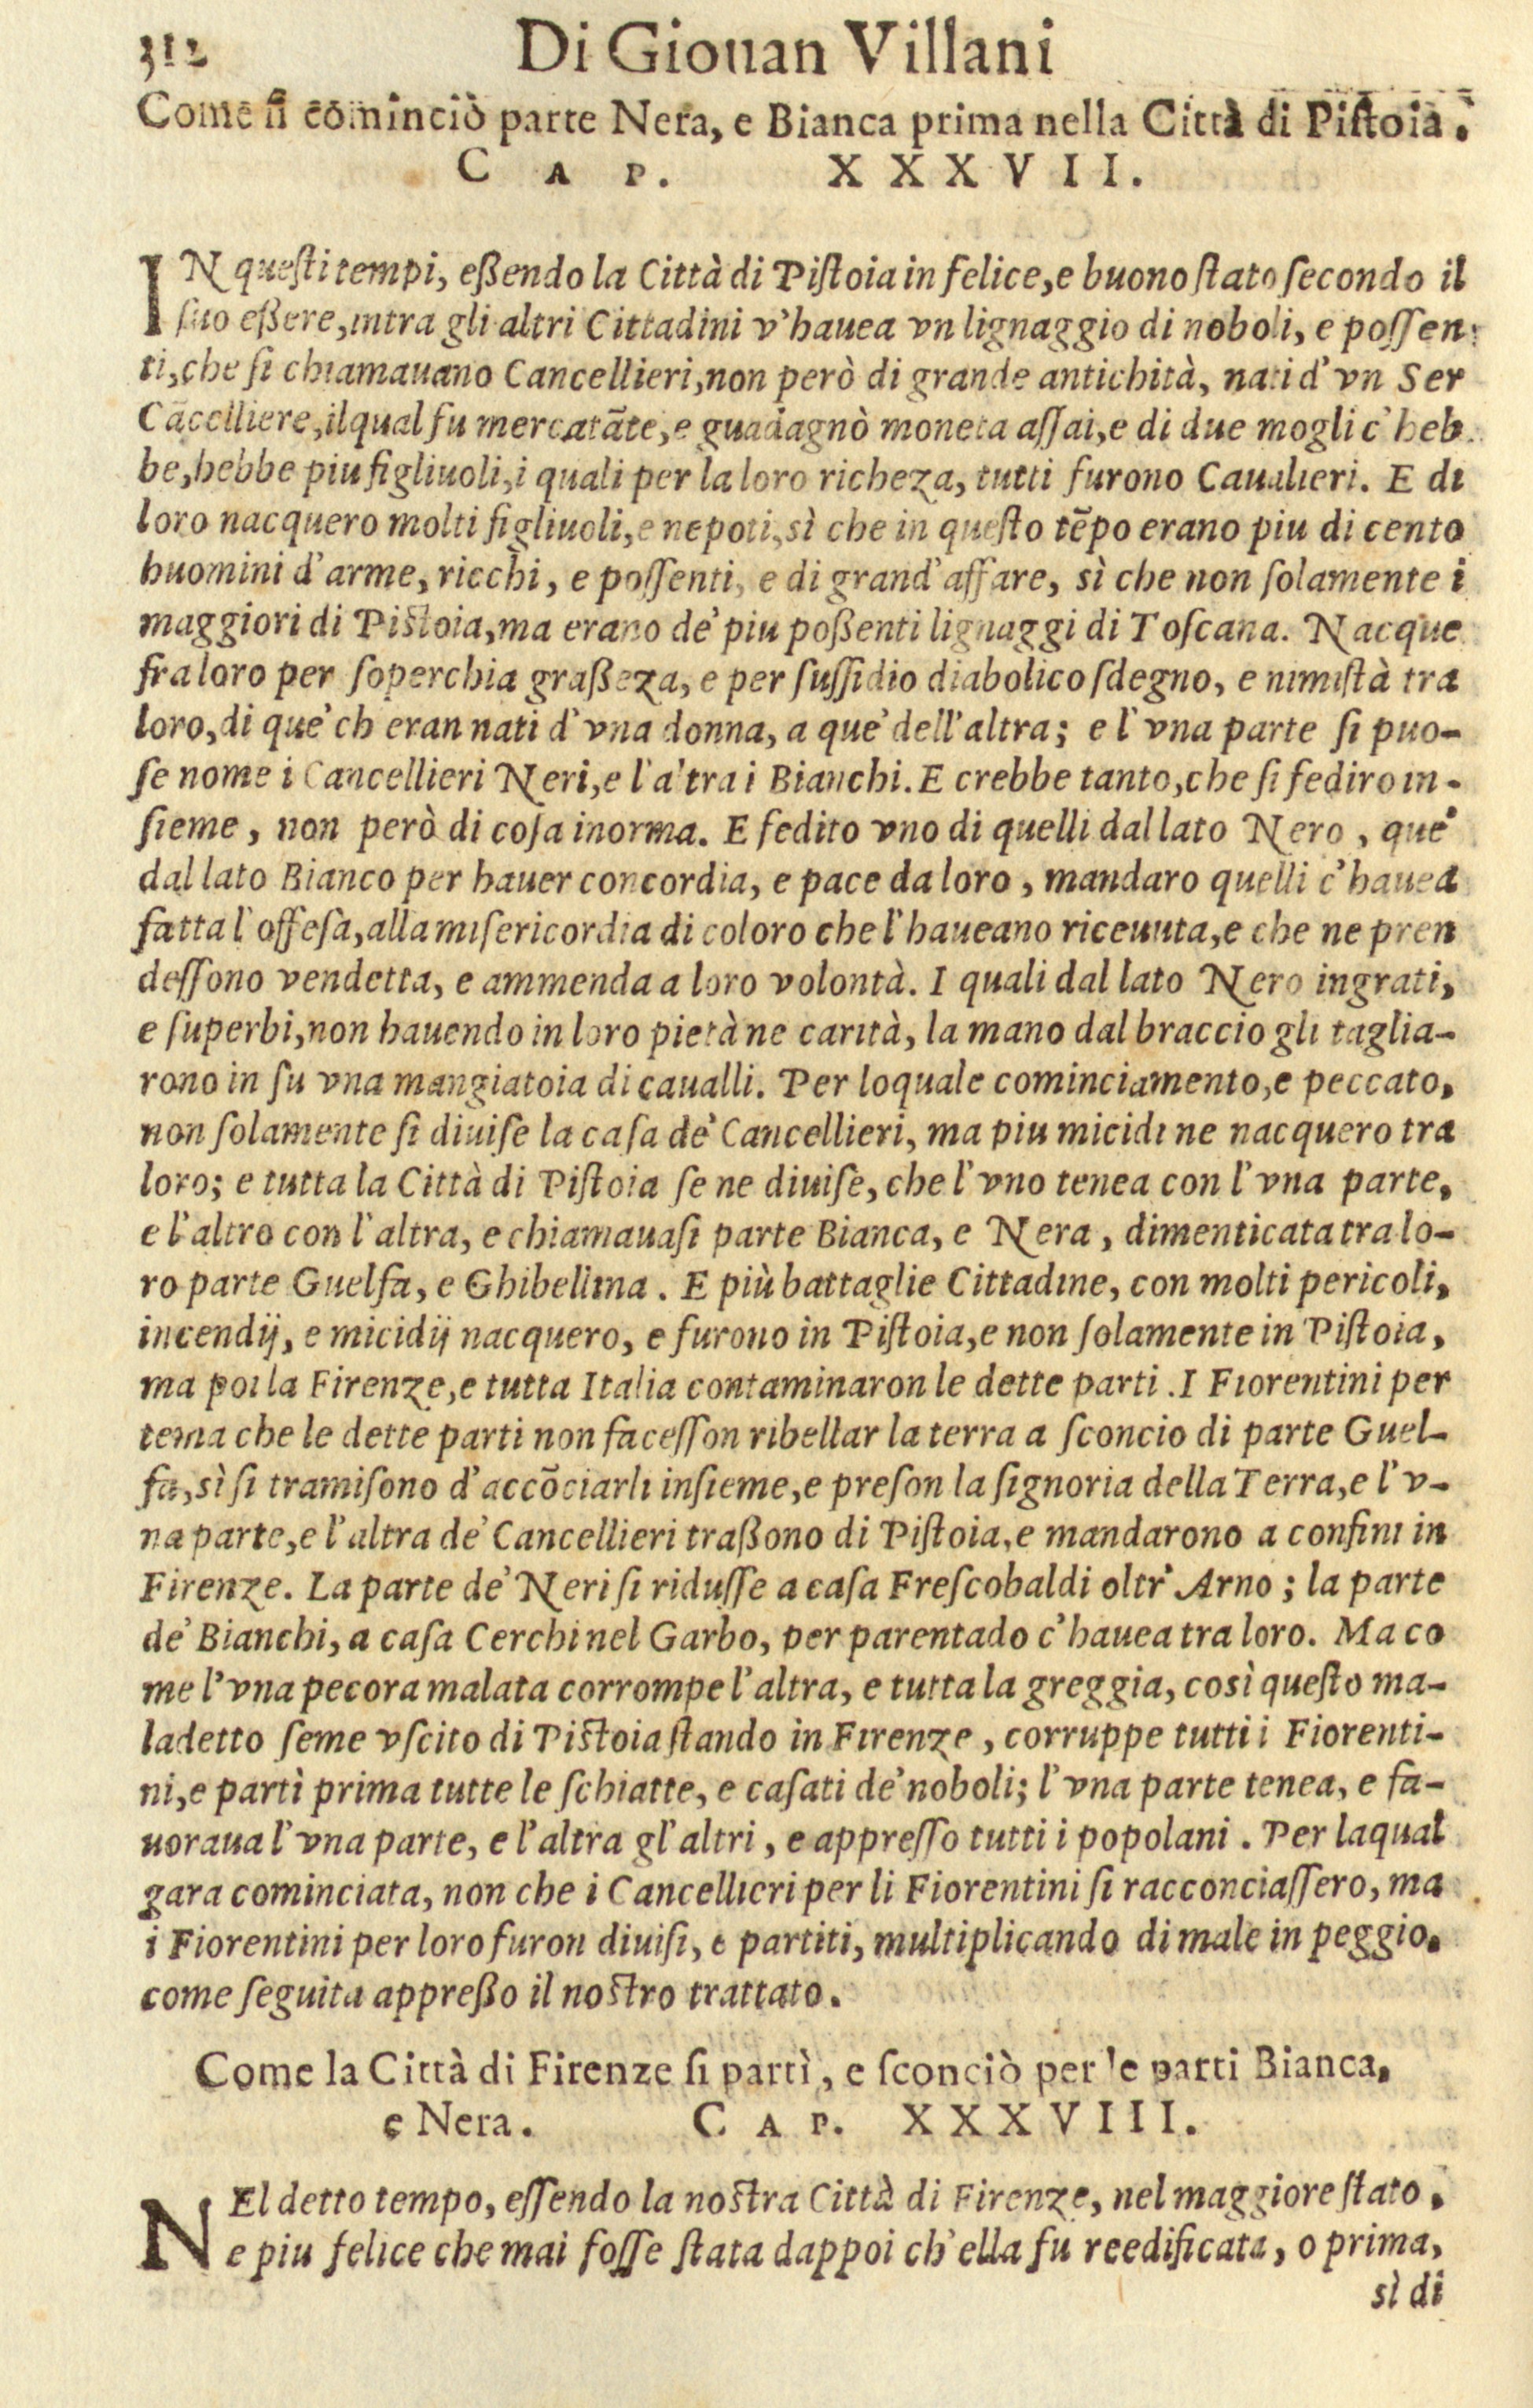 312 Di Giouan Villani
Come ſi cominciò parte Nera, e Bianca prima nella Città di Piſtoia.
CAP. XXXVII.
IN queſti tempi, eßendo la Città di Piſtoia in felice, e buono ſtato ſecondo il
ſuo eßere, intra gli altri Cittadini v'hauea vn lignaggio di noboli, e poſſen-
ti, che ſi chiamauano Cancellieri, non però di grande antichità, nati d'vn Ser
Cācelliere, ilqual fu mercatāte, e guadagnò moneta aſſai, e di due mogli c'heb
be, hebbe piu figliuoli, i quali per la loro richeza, tutti furono Caualieri. E di
loro nacquero molti figliuoli, e nepoti, sì che in queſto tēpo erano piu di cento
huomini d'arme, ricchi, e poſſenti, e di grand'affare, sì che non ſolamente i
maggiori di Piſtoia, ma erano de' piu poßenti lignaggi di Toſcana. Nacque
fra loro per ſoperchia graßeza, e per ſuſſidio diabolico ſdegno, e nimiſtà tra
loro, di que' ch eran nati d'vna donna, a que' dell'altra; e l'vna parte ſi puo-
ſe nome i Cancellieri Neri, e l'altra i Bianchi. E crebbe tanto, che ſi fediro in-
ſieme, non però di coſa inorma. E fedito vno di quelli dal lato Nero, que'
dal lato Bianco per hauer concordia, e pace da loro, mandaro quelli c'hauea
fatta l'offeſa, alla miſericordia di coloro che l'haueano riceuuta, e che ne pren
deſſono vendetta, e ammenda a loro volontà. I quali dal lato Nero ingrati,
e ſuperbi, non hauendo in loro pietà ne carità, la mano dal braccio gli taglia-
rono in ſu vna mangiatoia di caualli. Per loquale cominciamento, e peccato,
non ſolamente ſi diuiſe la caſa de' Cancellieri, ma piu micidi ne nacquero tra
loro; e tutta la Città di Piſtoia ſe ne diuiſe, che l'vno tenea con l'vna parte,
e l'altro con l'altra, e chiamauaſi parte Bianca, e Nera, dimenticata tra lo-
ro parte Guelfa, e Ghibellina. E più battaglie Cittadine, con molti pericoli,
incendij, e micidij nacquero, e furono in Piſtoia, e non ſolamente in Piſtoia,
ma poi la Firenze, e tutta Italia contaminaron le dette parti. I Fiorentini per
tema che le dette parti non faceſſon ribellar la terra a ſconcio di parte Guel-
fa, sì ſi tramiſono d'accōciarli inſieme, e preſon la ſignoria della Terra, e l'v-
na parte, e l'altra de' Cancellieri traßono di Piſtoia, e mandarono a confini in
Firenze. La parte de' Neri ſi riduſſe a caſa Freſcobaldi oltr'Arno; la parte
de' Bianchi, a caſa Cerchi nel Garbo, per parentado c'hauea tra loro. Ma co
me l'vna pecora malata corrompe l'altra, e tutta la greggia, così queſto ma-
ladetto ſeme vſcito di Piſtoia ſtando in Firenze, corruppe tutti i Fiorenti-
ni, e partì prima tutte le ſchiatte, e caſati de' noboli; l'vna parte tenea, e fa-
uoraua l'vna parte, e l'altra gl'altri, e appreſſo tutti i popolani. Per laqual
gara cominciata, non che i Cancellieri per li Fiorentini ſi racconciaſſero, ma
i Fiorentini per loro furon diuiſi, e partiti, multiplicando di male in peggio,
come ſeguita appreßo il noſtro trattato.
Come la Città di Firenze ſi partì, e ſconciò per le parti Bianca,
e Nera. CAP. XXXVIII.
NEl detto tempo, eſſendo la noſtra Città di Firenze, nel maggiore ſtato,
e piu felice che mai foſſe ſtata dappoi ch'ella fu reedificata, o prima,
sì di